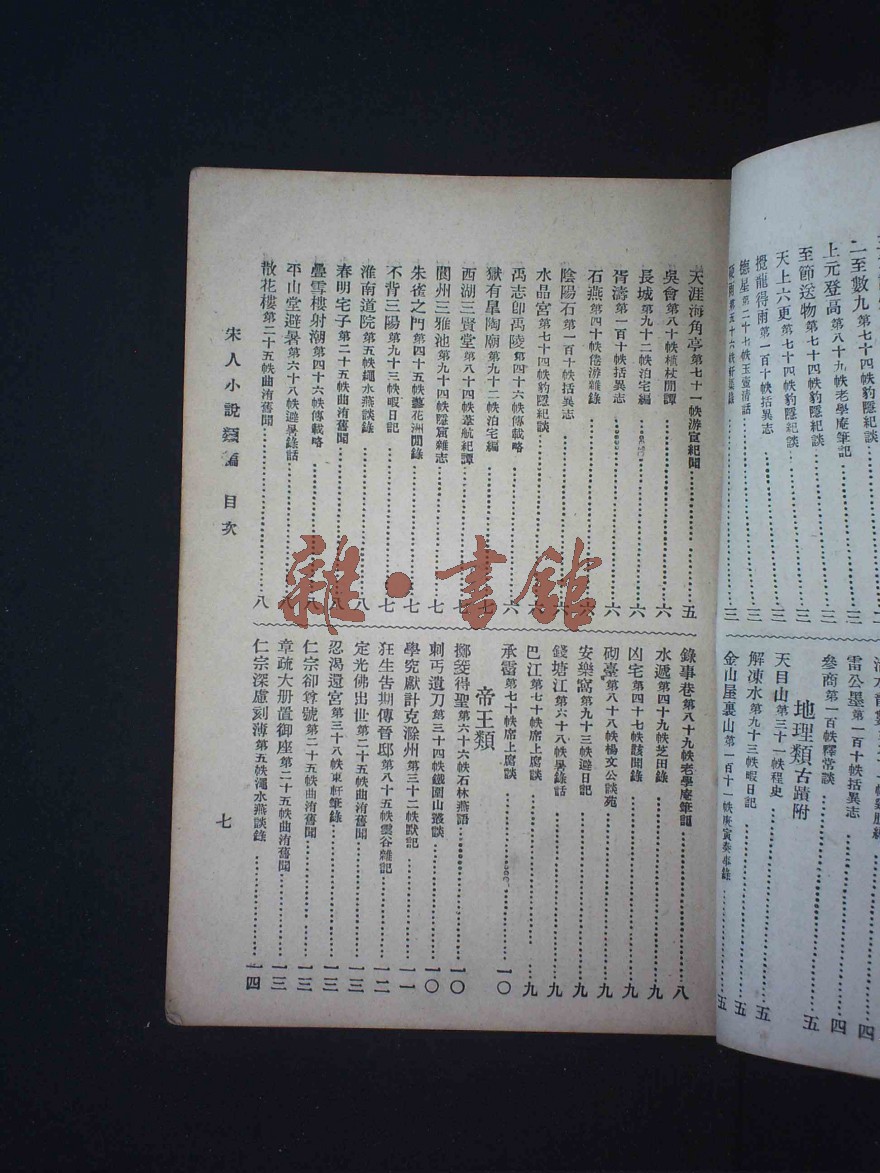 二至數九第七十四帙豹隱紀談
上元登高第八十九帙老學庵筆記
至節送物第七十四帙豹隱紀談
天上六更第七十四帙豹隱紀談
攪龍得雨第一百十帙括異志
德星第二十七帙玉壺清話
三
三
三
三
三
二
雷公墨第一百十帙括異志
四
參商第一百帙釋常談
四
地理類古蹟附
天目山第三十一帙程史
五
解凍水第九十三帙暇日記
五
金山屋裏山第一百十一帙庚寅奏事錄
五
天涯海角亭第七十一帙游宦紀聞
五
吳會第八十帙植杖閒譚
六
長城第九十二帙泊宅編
六
胥濤第一百十帙括異志
六
石燕第四十帙倦游雜錄
六
陰陽石第一百十帙括異志
六
水晶宮第七十四帙豹隱紀談
六
禹志卽禹陵第四十六帙傳載略
六
獄有臯陶廟第九十二帙泊宅編
七
西湖三賢堂第八十四帙葦航紀譚
七
閬州三雅池第九十四帙隱窟雜志
七
朱雀之門第四十五帙藝花洲閒錄
七
不背三陽第九十三帙暇日記
七
淮南道院第五帙繩水燕談錄
八
春明宅子第二十五帙曲洧舊聞
八
疊雪樓射潮第四十六帙傳載略
八
平山堂避暑第六十八帙避暑錄話
八
散花樓第二十五帙曲洧舊聞
八
錄事巷第八十九帙老學庵筆記
八
水遞第四十九帙芝田錄
九
凶宅第四十七帙該聞錄
九
砌臺第八十八帙楊文公談苑
九
安樂窩第九十三帙避日記
九
錢塘江第六十八帙暑錄話
九
巴江第七十帙席上腐談
九
承霤第七十帙席上腐談
一〇
帝王類
擲茭得聖第六十六帙石林燕語
一〇
刺丐遺刀第三十四帙鐵圍山叢談
一〇
學究獻計克滁州第三十二帙默記
一一
狂生告圳傳晉邸第八十五帙雲谷雜記
一二
定光佛出世第二十五帙曲洧舊聞
一三
忍渴還宮第三十八帙東軒筆錄
一三
仁宗卻尊號第二十五帙曲洧舊聞
一三
章疏大册置御座第二十五帙曲洧舊聞
一三
仁宗深慮刻薄第五帙澠水燕談錄
一四
宋人小說類編 目次
七
雜·書館